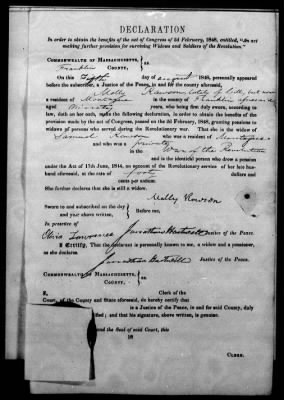 DECLARATION
In order to obtain the benefits of the act of Congress of 2d February, 1848, entitled, "An act
making further provision for surviving Widows and Soldiers of the Revolution."
COMMONWEALTH OF MASSACHUSETTS, } ss.
Franklin COUNTY,
On this day of August 1848, personally appeared
before the subscriber, a Justice of the Peace, in and for the county aforesaid,
Molly but now
a resident of Montague in the county of Franklin aforesaid
aged years, who being first duly sworn, according to
law, doth on her oath, make the following declaration, in order to obtain the benefits of the
provision made by the act of Congress, passed on the 2d February, 1848, granting pensions to
widows of persons who served during the Revolutionary war. That she is the widow of
Samuel who was a resident of Montague
and who was a private in the
War of the Revolution
and is the identical person who drew a pension
under the Act of 17th June, 1844, on account of the Revolutionary service of her late hus-
band aforesaid, at the rate of dollars and
cents per annum.
She further declares that she is still a widow.
Molly
Sworn to and subscribed on the day
and year above written, } Before me,
In presence of
Justice of the Peace.
I CERTIFY, That the declarant is personally known to me, a widow and a pensioner,
as she declares.
Justice of the Peace.
COMMONWEALTH OF MASSACHUSETTS,
COUNTY, } ss.
I, Clerk of the
Court, of the County and State aforesaid, do hereby certify that
is a Justice of the Peace, in and for said County, duly
and that his signature, above written, is genuine.
and the Seal of said Court, this
18
CLERK.